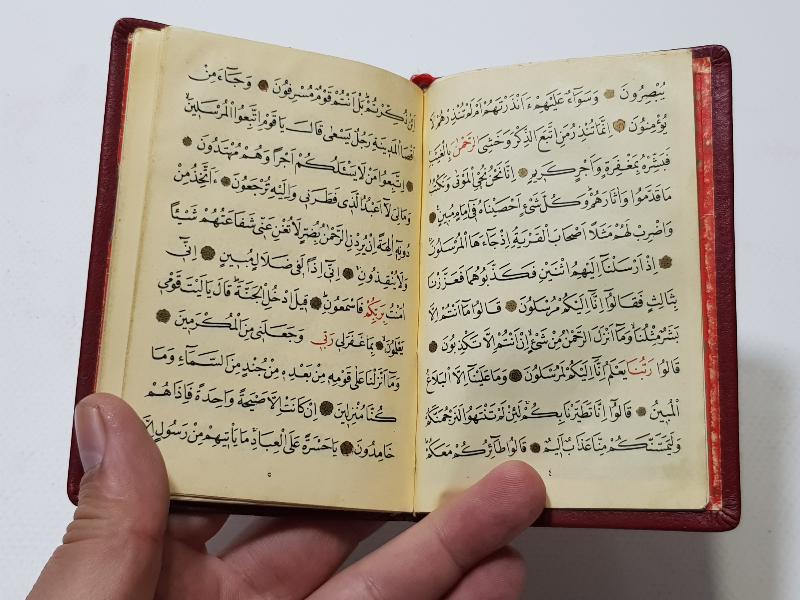 يُبْصِرُونَ وَسَوَآءٌ عَلَيْهِمْ ءَاَنْذَرْتَهُمْ اَمْ لَمْ تُنْذِرْهُمْ لَا
يُؤْمِنُونَ اِنَّمَا تُنْذِرُ مَنِ اتَّبَعَ الذِّكْرَ وَخَشِىَ الرَّحْمٰنَ بِالْغَيْبِ
فَبَشِّرْهُ بِمَغْفِرَةٍ وَاَجْرٍ كَرِيمٍ اِنَّا نَحْنُ نُحْيِى الْمَوْتٰى وَنَكْتُبُ
مَا قَدَّمُوا وَاٰثَارَهُمْ وَكُلَّ شَىْءٍ اَحْصَيْنَاهُ فِى اِمَامٍ مُبِينٍ
وَاضْرِبْ لَهُمْ مَثَلًا اَصْحَابَ الْقَرْيَةِ اِذْ جَآءَهَا الْمُرْسَلُونَ
اِذْ اَرْسَلْنَآ اِلَيْهِمُ اثْنَيْنِ فَكَذَّبُوهُمَا فَعَزَّزْنَا
بِثَالِثٍ فَقَالُوٓا اِنَّآ اِلَيْكُمْ مُرْسَلُونَ قَالُوا مَآ اَنْتُمْ اِلَّا
بَشَرٌ مِثْلُنَا وَمَآ اَنْزَلَ الرَّحْمٰنُ مِنْ شَىْءٍ اِنْ اَنْتُمْ اِلَّا تَكْذِبُونَ
قَالُوا رَبُّنَا يَعْلَمُ اِنَّآ اِلَيْكُمْ لَمُرْسَلُونَ وَمَا عَلَيْنَآ اِلَّا الْبَلَاغُ
الْمُبِينُ قَالُوٓا اِنَّا تَطَيَّرْنَا بِكُمْ لَئِنْ لَمْ تَنْتَهُوا لَنَرْجُمَنَّكُمْ
وَلَيَمَسَّنَّكُمْ مِنَّا عَذَابٌ اَلِيمٌ قَالُوا طَآئِرُكُمْ مَعَكُمْ
٤
اَئِنْ ذُكِّرْتُمْ بَلْ اَنْتُمْ قَوْمٌ مُسْرِفُونَ وَجَآءَ مِنْ
اَقْصَا الْمَدِينَةِ رَجُلٌ يَسْعٰى قَالَ يَا قَوْمِ اتَّبِعُوا الْمُرْسَلِينَ
اِتَّبِعُوا مَنْ لَا يَسْئَلُكُمْ اَجْرًا وَهُمْ مُهْتَدُونَ
وَمَالِىَ لَآ اَعْبُدُ الَّذِى فَطَرَنِى وَاِلَيْهِ تُرْجَعُونَ ءَاَتَّخِذُ مِنْ
دُونِهٖٓ اٰلِهَةً اِنْ يُرِدْنِ الرَّحْمٰنُ بِضُرٍّ لَا تُغْنِ عَنِّى شَفَاعَتُهُمْ شَيْئًا
وَلَا يُنْقِذُونِ اِنِّىٓ اِذًا لَفِى ضَلَالٍ مُبِينٍ اِنِّىٓ
اٰمَنْتُ بِرَبِّكُمْ فَاسْمَعُونِ قِيلَ ادْخُلِ الْجَنَّةَ قَالَ يَا لَيْتَ قَوْمِى
يَعْلَمُونَ بِمَا غَفَرَلِى رَبِّى وَجَعَلَنِى مِنَ الْمُكْرَمِينَ
وَمَآ اَنْزَلْنَا عَلٰى قَوْمِهٖ مِنْ بَعْدِهٖ مِنْ جُنْدٍ مِنَ السَّمَآءِ وَمَا
كُنَّا مُنْزِلِينَ اِنْ كَانَتْ اِلَّا صَيْحَةً وَاحِدَةً فَاِذَا هُمْ
خَامِدُونَ يَا حَسْرَةً عَلَى الْعِبَادِ مَا يَاْتِيهِمْ مِنْ رَسُولٍ اِلَّا
٥